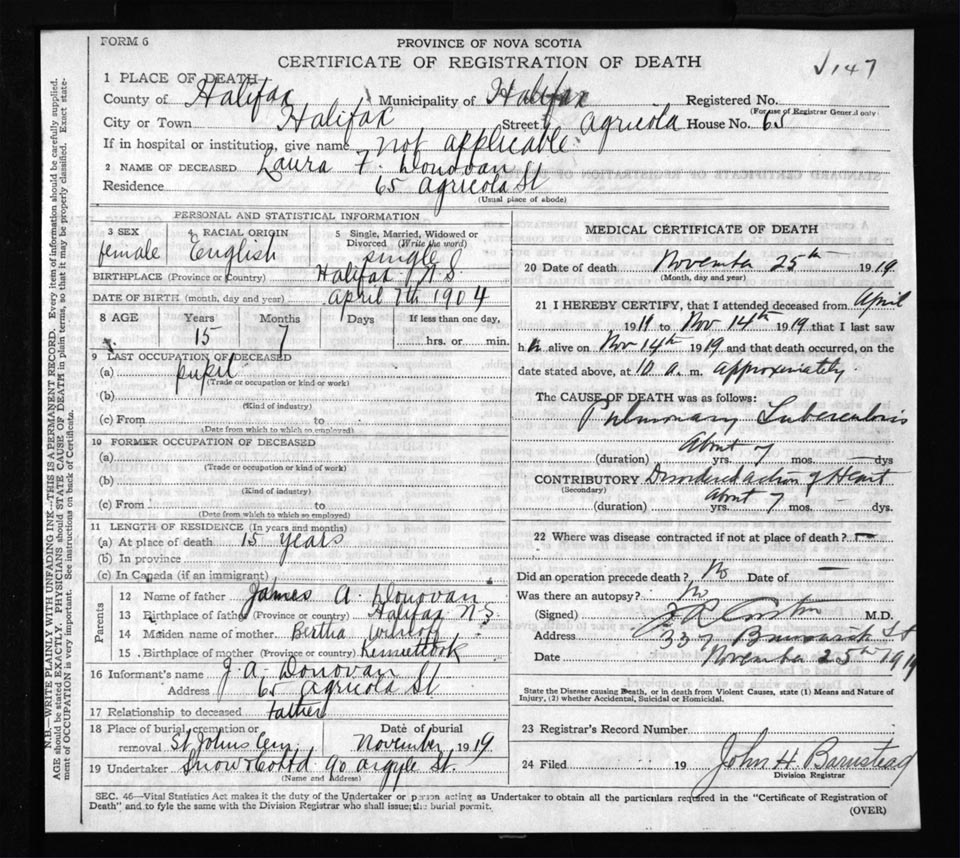 FORM 6
PROVINCE OF NOVA SCOTIA
CERTIFICATE OF REGISTRATION OF DEATH
√147
1 PLACE OF DEATH
County of Halifax Municipality of Halifax Registered No.
(For use of Registrar General only)
City or Town Halifax Street Agricola House No. 65
If in hospital or institution, give name not applicable
2 NAME OF DECEASED Laura F. Donovan
Residence 65 Agricola St
(Usual place of abode)
PERSONAL AND STATISTICAL INFORMATION
3 SEX female
4 RACIAL ORIGIN English
5 Single, Married, Widowed or Divorced (Write the word) single
BIRTHPLACE (Province or Country) Halifax N S
DATE OF BIRTH (month, day and year) April 7th 1904
8 AGE Years 15 Months 7 Days If less than one day, hrs. or min.
9 LAST OCCUPATION OF DECEASED
(a) pupil
(Trade or occupation or kind or work)
(b)
(Kind of industry)
(c) From to
(Date from which to which so employed)
10 FORMER OCCUPATION OF DECEASED
(a)
(Trade or occupation or kind of work)
(b)
(Kind of industry)
(c) From to
(Date from which to which so employed)
11 LENGTH OF RESIDENCE (In years and months)
(a) At place of death 15 years
(b) In province
(c) In Canada (if an immigrant)
Parents
12 Name of father James A. Donovan
13 Birthplace of father (Province or country) Halifax N S
14 Maiden name of mother Bertha
15 Birthplace of mother (Province or country)
16 Informant's name J. A. Donovan
Address 65 Agricola St
17 Relationship to deceased father
18 Place of burial, cremation or removal St Johns Cem Date of burial November 1919
19 Undertaker Snow & Co Ltd 90 Argyle St.
(Name and Address)
MEDICAL CERTIFICATE OF DEATH
20 Date of death November 25th 1919
(Month, day and year)
21 I HEREBY CERTIFY, that I attended deceased from April
1919 to Nov 14th 1919 that I last saw
her alive on Nov 14th 1919 and that death occurred, on the
date stated above, at 10 a. m. approximately.
The CAUSE OF DEATH was as follows:
Pulmonary Tuberculosis
About 7
(duration) yrs. mos. — dys
CONTRIBUTORY Disordered action of Heart
(Secondary)
about 7
(duration) yrs. mos. — dys.
22 Where was disease contracted if not at place of death? —
Did an operation precede death? No Date of —
Was there an autopsy? No
(Signed) M.D.
Address 337 Brunswick St
Date November 25th 1919
State the Disease causing Death, or in death from Violent Causes, state (1) Means and Nature of
Injury, (2) whether Accidental, Suicidal or Homicidal.
23 Registrar's Record Number
24 Filed 19 John H. Barnstead
Division Registrar
SEC. 46—Vital Statistics Act makes it the duty of the Undertaker or person acting as Undertaker to obtain all the particulars required in the "Certificate of Registration of
Death" and to fyle the same with the Division Registrar who shall issue the burial permit.
(OVER)
N.B.—WRITE PLAINLY WITH UNFADING INK—THIS IS A PERMANENT RECORD. Every item of information should be carefully supplied.
AGE should be stated EXACTLY. PHYSICIANS should STATE CAUSE OF DEATH in plain terms, so that it may be properly classified. Exact statement
of OCCUPATION is very important. See instructions on back of Certificate.